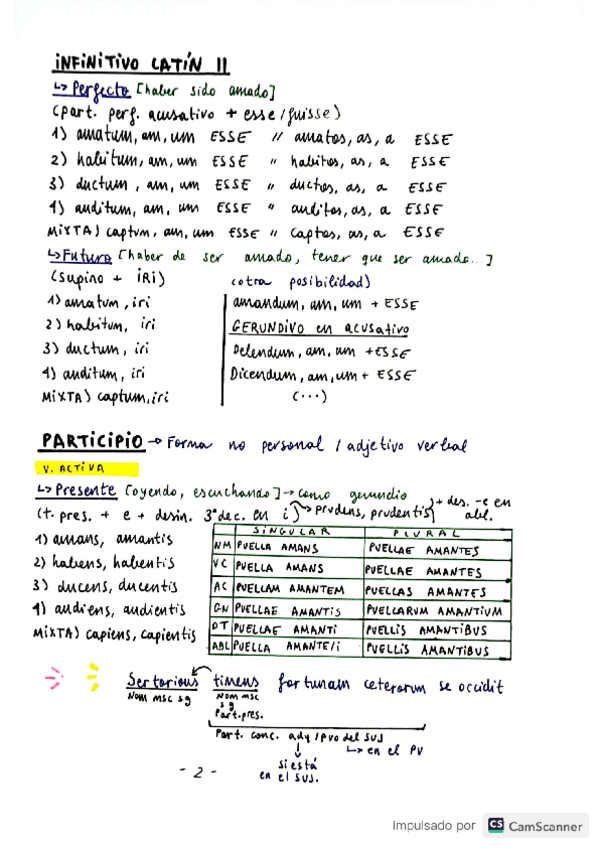 INFINITIVO LATÍN II
↳ Perfecto [haber sido amado]
(part. perf. acusativo + esse / fuisse)
1) amatum, am, um ESSE // amatos, as, a ESSE
2) habitum, am, um ESSE " habitos, as, a ESSE
3) ductum, am, um ESSE " ductos, as, a ESSE
4) auditum, am, um ESSE " auditos, as, a ESSE
MIXTA) captum, am, um ESSE " captos, as, a ESSE
↳ Futuro [haber de ser amado, tener que ser amado...]
(Supino + IRI) (otra posibilidad)
1) amatum, iri amandum, am, um + ESSE
2) habitum, iri GERUNDIVO en acusativo
3) ductum, iri Delendum, am, um + ESSE
4) auditum, iri Dicendum, am, um + ESSE
MIXTA) captum, iri (...)
PARTICIPIO → Forma no personal / adjetivo verbal
V. ACTIVA
↳ Presente [oyendo, escuchando] → como gerundio
(t. pres. + e + desin. 3ª dec. en i) → prudens, prudentis + des. -e en abl.
1) amans, amantis
2) habens, habentis
3) ducens, ducentis
4) audiens, audientis
MIXTA) capiens, capientis
SINGULAR PLURAL
NM PUELLA AMANS PUELLAE AMANTES
VC PUELLA AMANS PUELLAE AMANTES
AC PUELLAM AMANTEM PUELLAS AMANTES
GN PUELLAE AMANTIS PUELLARUM AMANTIUM
DT PUELLAE AMANTI PUELLIS AMANTIBUS
ABL PUELLA AMANTE/I PUELLIS AMANTIBUS
Sertorious timens fortunam ceterorum se occidit
Nom msc sg Nom msc sg
Part. pres.
Part. conc. ady / pvo del sus
↓ ↳ en el PV
si está
en el sus.
- 2 -
Impulsado por CS CamScanner